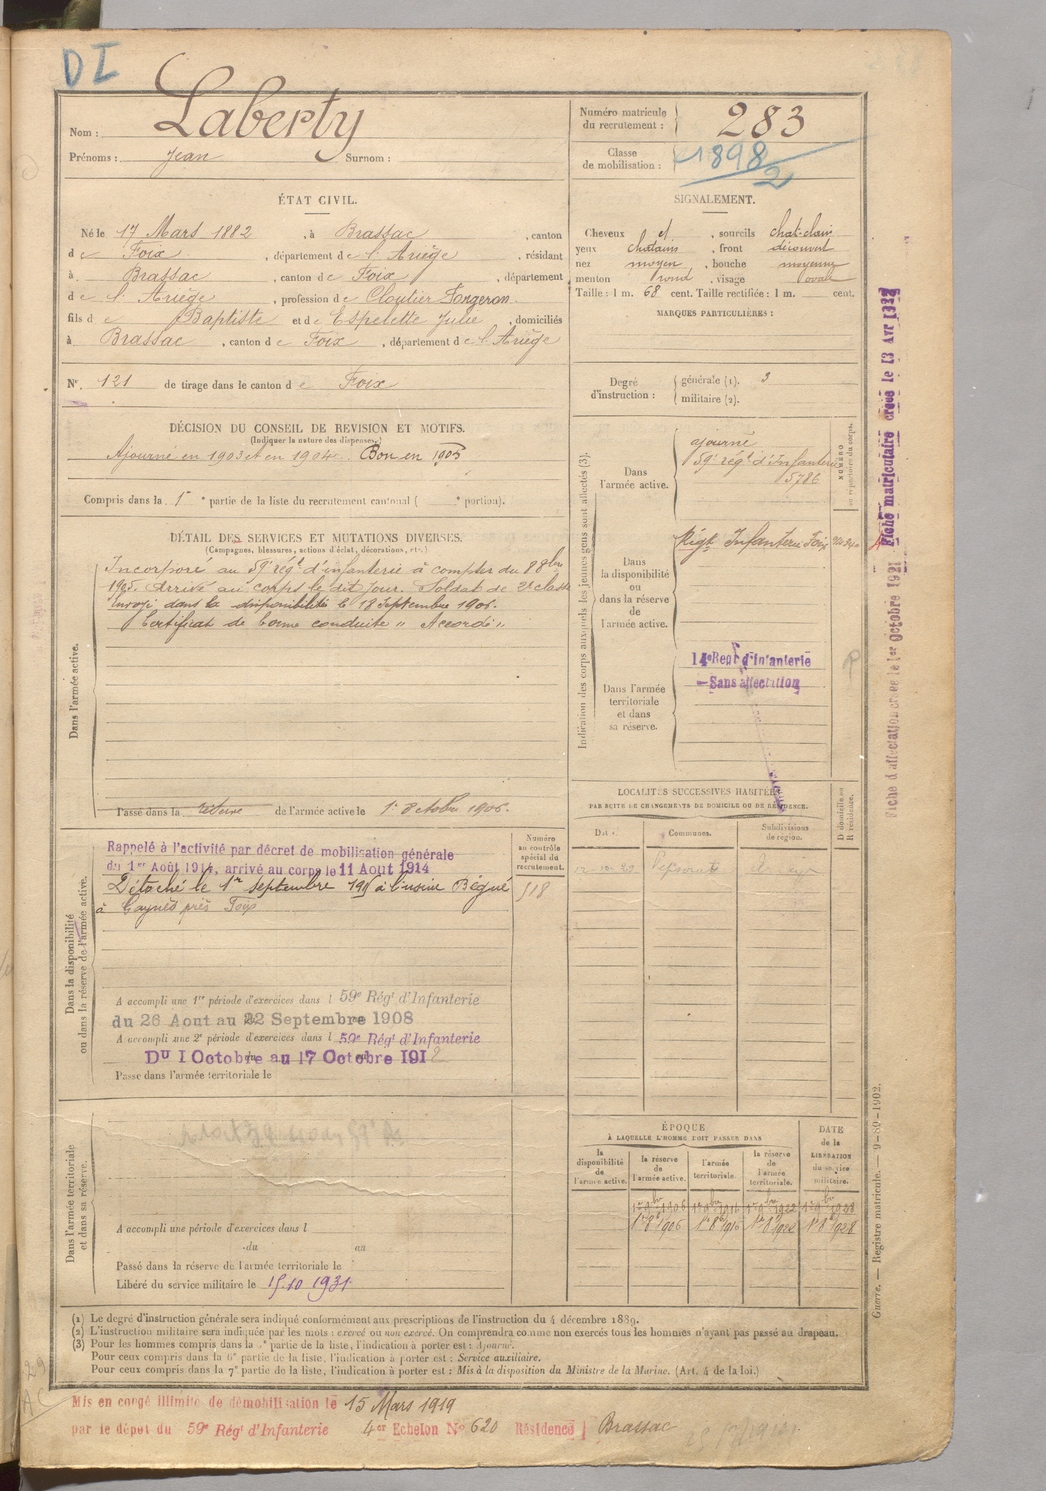 DI
Nom : Laberty
Prénoms : Jean Surnom :
Numéro matricule du recrutement : 283
Classe de mobilisation : 1898/2
ÉTAT CIVIL.
Né le 17 Mars 1882, à Brassac, canton
de Foix, département de l'Ariège, résidant
à Brassac, canton de Foix, département
de l'Ariège, profession de Cloutier Forgeron
fils de Baptiste et de Espelette Julie, domiciliés
à Brassac, canton de Foix, département de l'Ariège
N° 121 de tirage dans le canton de Foix
SIGNALEMENT.
Cheveux et, sourcils chat-clair
yeux chatains, front découvert
nez moyen, bouche moyenne
menton rond, visage ovale
Taille : 1 m. 68 cent. Taille rectifiée : 1 m. cent.
MARQUES PARTICULIÈRES :
Degré d'instruction : générale (1). 3
militaire (2).
DÉCISION DU CONSEIL DE REVISION ET MOTIFS.
(Indiquer la nature des dispenses.)
Ajourné en 1903 et en 1904. Bon en 1905
Compris dans la 1e partie de la liste du recrutement cantonal ( e portion).
DÉTAIL DES SERVICES ET MUTATIONS DIVERSES.
(Campagnes, blessures, actions d'éclat, décorations, etc.)
Dans l'armée active.
Incorporé au 59e régt d'infanterie à compter du 8 8bre
1905. Arrivé au corps le dit jour. Soldat de 2e classe
Envoyé dans la disponibilité le 18 Septembre 1906.
Certificat de bonne conduite " Accordé "
Passé dans la réserve de l'armée active le 1er Octobre 1906.
Indication des corps auxquels les jeunes gens sont affectés (3).
Dans l'armée active.
ajourné
59e régt d'Infanterie
5786
NUMÉRO au répertoire du corps.
Dans la disponibilité ou dans la réserve de l'armée active.
Régt Infanterie Foix
Dans l'armée territoriale et dans sa réserve.
14e Regt d'Infanterie
Sans affectation
LOCALITÉS SUCCESSIVES HABITÉES
PAR SUITE DE CHANGEMENTS DE DOMICILE OU DE RÉSIDENCE.
Dates. Communes. Subdivisions de région. D domicile ou R résidence.
Dans la disponibilité ou dans la réserve de l'armée active.
Numéro au contrôle spécial du recrutement.
518
Rappelé à l'activité par décret de mobilisation générale
du 1er Août 1914, arrivé au corps le 11 Aout 1914
Détaché le 1er septembre 191 à l'usine Bégué
à près Foix
A accompli une 1re période d'exercices dans l 59e Régt d'Infanterie
du 26 Aout au 22 Septembre 1908
A accompli une 2e période d'exercices dans l 59e Régt d'Infanterie
Du 1 Octobre au 17 Octobre 1912
Passé dans l'armée territoriale le
Dans l'armée territoriale et dans sa réserve.
A accompli une période d'exercices dans l
du au
Passé dans la réserve de l'armée territoriale le
Libéré du service militaire le 15.10 1931
ÉPOQUE
À LAQUELLE L'HOMME DOIT PASSER DANS
DATE de la LIBÉRATION du service militaire.
la disponibilité de l'armée active. la réserve de l'armée active. l'armée territoriale. la réserve de l'armée territoriale.
1er 9bre 1908 1er 9bre 1916 1er 9bre 1922 1er 9bre 1928
1er 8bre 1906 1er 8bre 1916 1er 8bre 1922 1er 8bre 1928
(1) Le degré d'instruction générale sera indiqué conformément aux prescriptions de l'instruction du 4 décembre 1889.
(2) L'instruction militaire sera indiquée par les mots : exercé ou non exercé. On comprendra comme non exercés tous les hommes n'ayant pas passé au drapeau.
(3) Pour les hommes compris dans la e partie de la liste, l'indication à porter est : Ajourné.
Pour ceux compris dans la 6e partie de la liste, l'indication à porter est : Service auxiliaire.
Pour ceux compris dans la 7e partie de la liste, l'indication à porter est : Mis à la disposition du Ministre de la Marine. (Art. 4 de la loi.)
Mis en congé illimité de démobilisation le 15 Mars 1919
par le dépôt du 59e Régt d'Infanterie 4er Echelon No 620 Résidence Brassac
Guerre. — Registre matricule. — 9-89-1902.
Fiche d'affectation créée le 1er Octobre 1921
Fiche matriculaire créée le 13 Avr